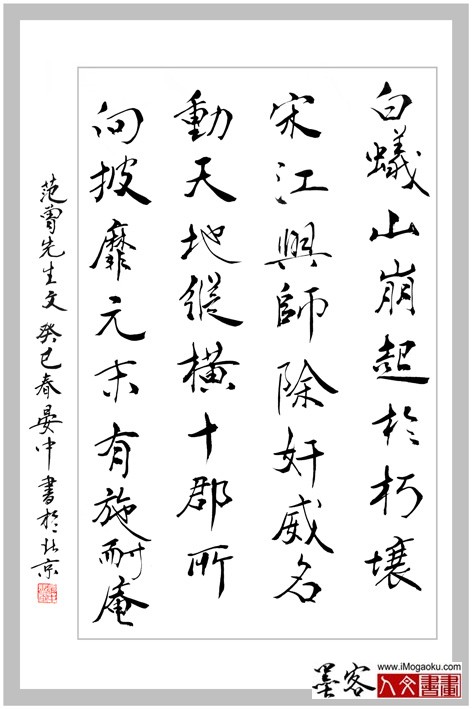 白蟻山崩起於朽壤
宋江興師除奸威名
動天地縱橫十郡所
向披靡元末有施耐庵
范曾先生文 癸巳春晏中書於北京
墨客
www.iMogaoku.com
人文書畫